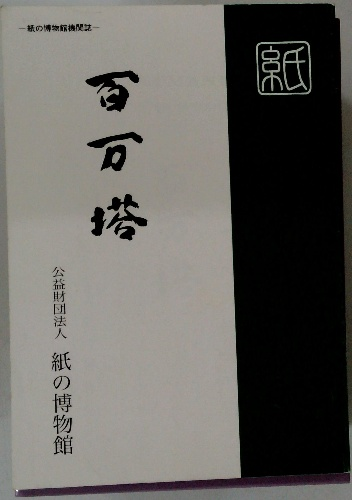 ―紙の博物館機関誌―
紙
百万塔
公益財団法人 紙の博物館